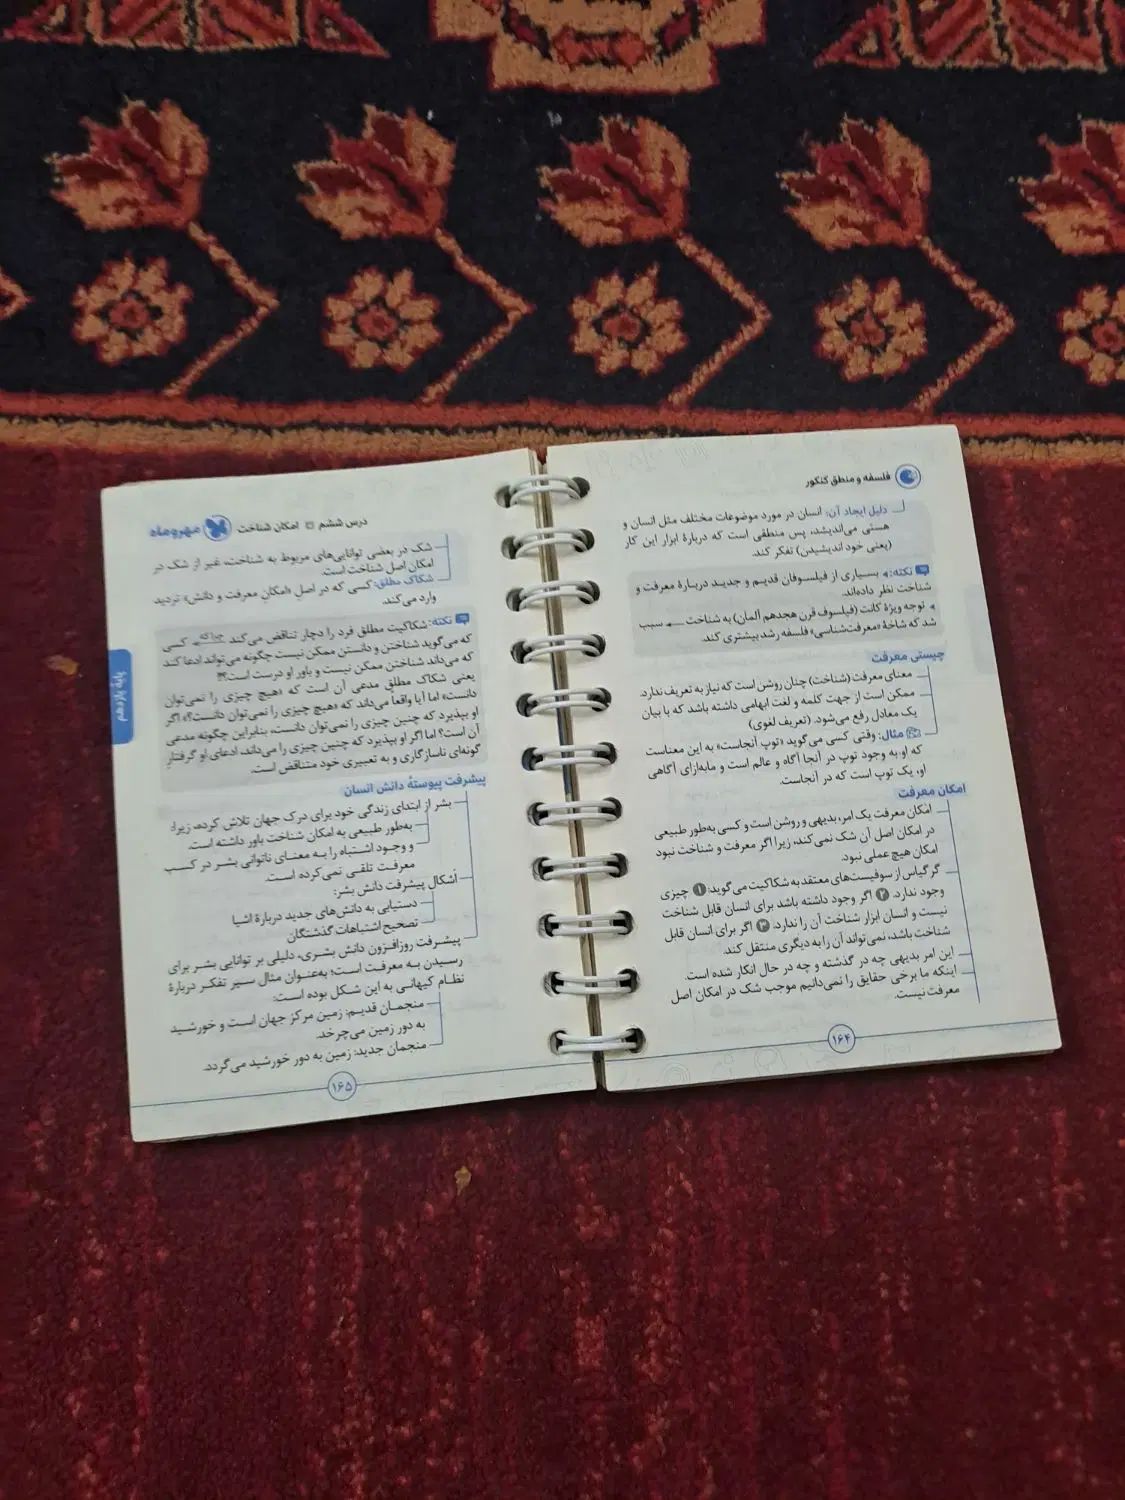 فلسفه و منطق کنکور
دلیل ایجاد آن: انسان در مورد موضوعات مختلف مثل انسان و
هستی می‌اندیشد، پس منطقی است که دربارۀ ابزار این کار
(یعنی خود اندیشیدن) تفکر کند.
نکته: بسیاری از فیلسوفان قدیم و جدید دربارۀ معرفت و
شناخت نظر داده‌اند.
توجه ویژۀ کانت (فیلسوف قرن هجدهم آلمان) به شناخت سبب
شد که شاخۀ «معرفت‌شناسی» فلسفه رشد بیشتری کند.
چیستی معرفت
معنای معرفت (شناخت) چنان روشن است که نیاز به تعریف ندارد.
ممکن است از جهت کلمه و لغت ابهامی داشته باشد که با بیان
یک معادل رفع می‌شود. (تعریف لغوی)
مثال: وقتی کسی می‌گوید «توپ آنجاست» به این معناست
که او به وجود توپ در آنجا آگاه و عالم است و مابه‌ازای آگاهی
او، یک توپ است که در آنجاست.
امکان معرفت
امکان معرفت یک امر، بدیهی و روشن است و کسی به‌طور طبیعی
در امکان اصل آن شک نمی‌کند، زیرا اگر معرفت و شناخت نبود
امکان هیچ عملی نبود.
گرگیاس از سوفیست‌های معتقد به شکاکیت می‌گوید: ۱ چیزی
وجود ندارد. ۲ اگر وجود داشته باشد برای انسان قابل شناخت
نیست و انسان ابزار شناخت آن را ندارد. ۳ اگر برای انسان قابل
شناخت باشد، نمی‌تواند آن را به دیگری منتقل کند.
این امر بدیهی چه در گذشته و چه در حال انکار شده است.
اینکه ما برخی حقایق را نمی‌دانیم موجب شک در امکان اصل
معرفت نیست.
۱۶۴
درس ششم امکان شناخت مهروماه
شک در بعضی توانایی‌های مربوط به شناخت، غیر از شک در
امکان اصل شناخت است.
شکاک مطلق: کسی که در اصل «امکان معرفت و دانش» تردید
وارد می‌کند.
نکته: شکاکیت مطلق فرد را دچار تناقض می‌کند چراکه کسی
که می‌گوید شناختن و دانستن ممکن نیست چگونه می‌تواند ادعا کند
که می‌داند شناختن ممکن نیست و باور او درست است؟!
یعنی شکاک مطلق مدعی آن است که «هیچ چیزی را نمی‌توان
دانست» اما آیا واقعاً می‌داند که «هیچ چیزی را نمی‌توان دانست؟» اگر
او بپذیرد که چنین چیزی را نمی‌توان دانست، بنابراین چگونه مدعی
آن است؟ اما اگر او بپذیرد که چنین چیزی را می‌داند، ادعای او گرفتار
گونه‌ای ناسازگاری و به تعبیری خود متناقض است.
پیشرفت پیوستۀ دانش انسان
بشر از ابتدای زندگی خود برای درک جهان تلاش کرده، زیرا:
به‌طور طبیعی به امکان شناخت باور داشته است.
و وجود اشتباه را به معنای ناتوانی بشر در کسب
معرفت تلقی نمی‌کرده است.
اَشکال پیشرفت دانش بشر:
دستیابی به دانش‌های جدید دربارۀ اشیا
تصحیح اشتباهات گذشتگان
پیشرفت روزافزون دانش بشری، دلیلی بر توانایی بشر برای
رسیدن به معرفت است؛ به‌عنوان مثال سیر تفکر دربارۀ
نظام کیهانی به این شکل بوده است:
منجمان قدیم: زمین مرکز جهان است و خورشید
به دور زمین می‌چرخد.
منجمان جدید: زمین به دور خورشید می‌گردد.
۱۶۵
پایۀ یازدهم